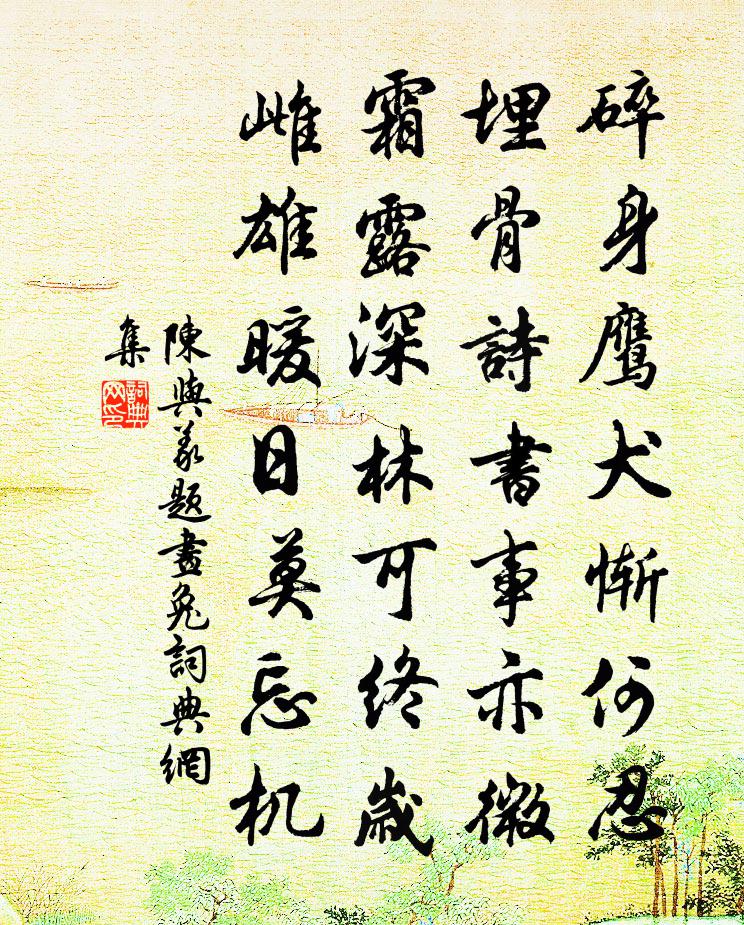 碎身鹰犬惭何忍
埋骨詩書事亦微
霜露深林可终歲
雌雄暖日莫忘机
陳與義題畫兔詞典網
集
詞典網印